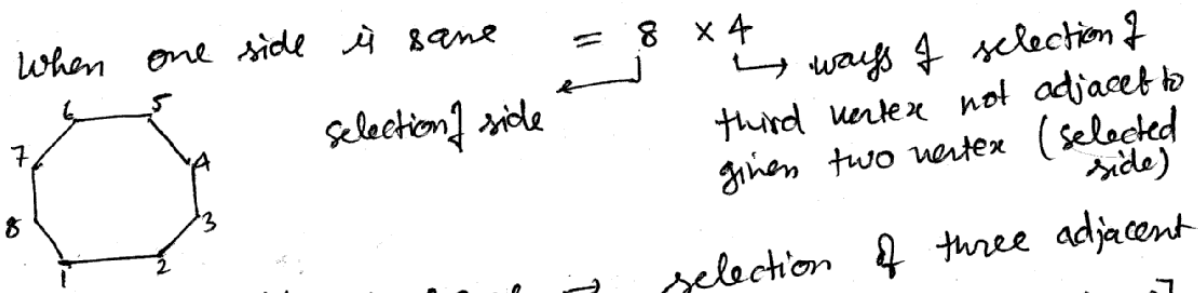 When one side is same = 8 × 4
selection of side
ways of selection of
third vertex not adjacet to
given two vertex (selected
side)
6 5
7 4
8 3
1 2
→ selection of three adjacent